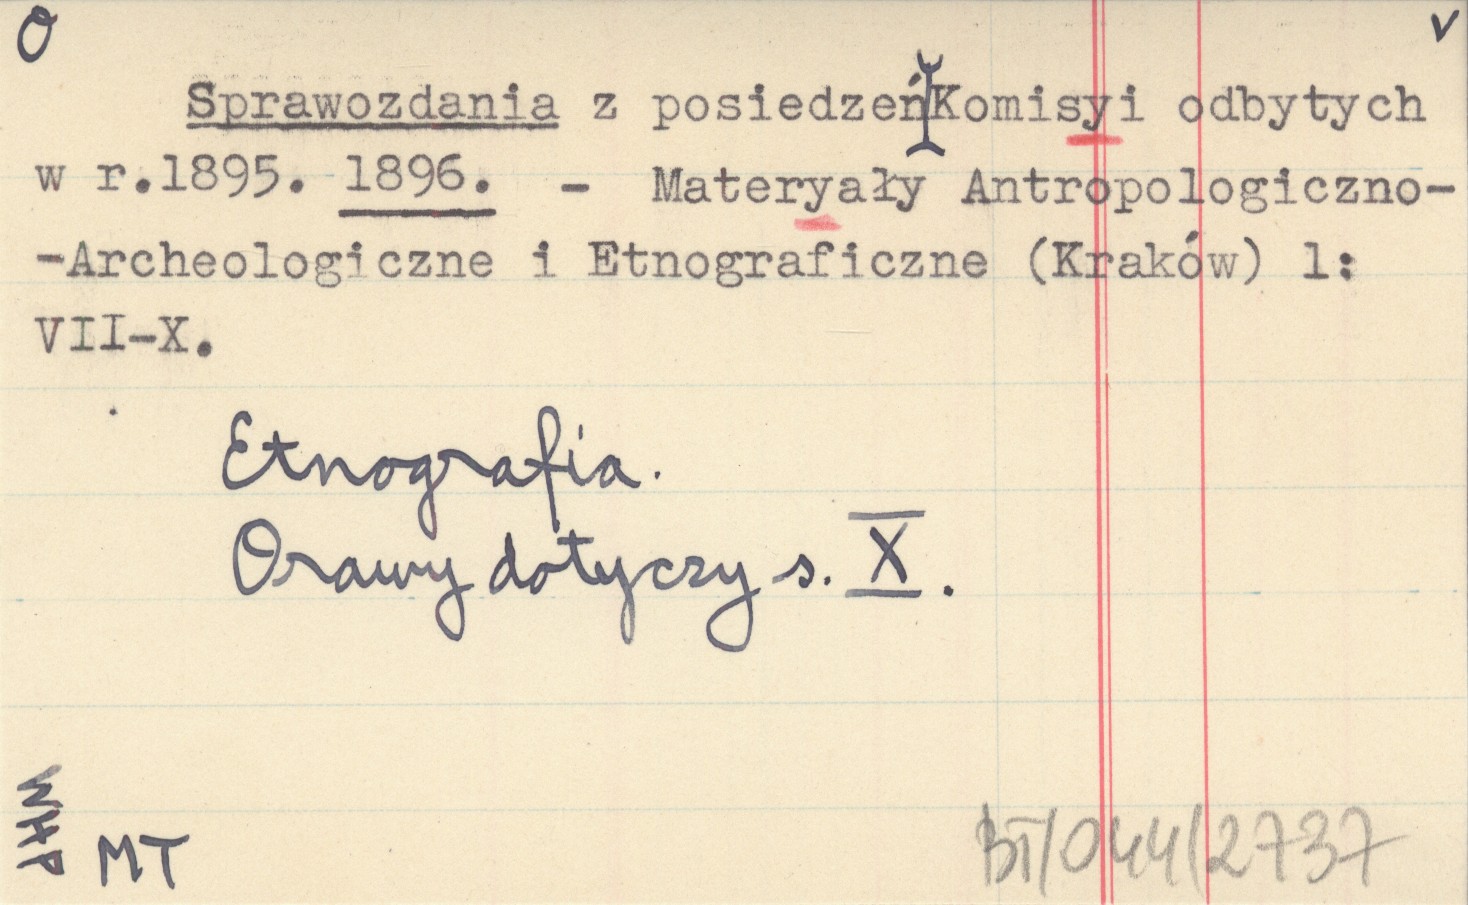 O v
Sprawozdania z posiedzeń Komisyi odbytych
w r.1895. 1896. - Materyały Antropologiczno-
-Archeologiczne i Etnograficzne (Kraków) 1:
VII-X.
Etnografia.
Orawy dotyczy s. X.
WHP
MT
BT/044/2737